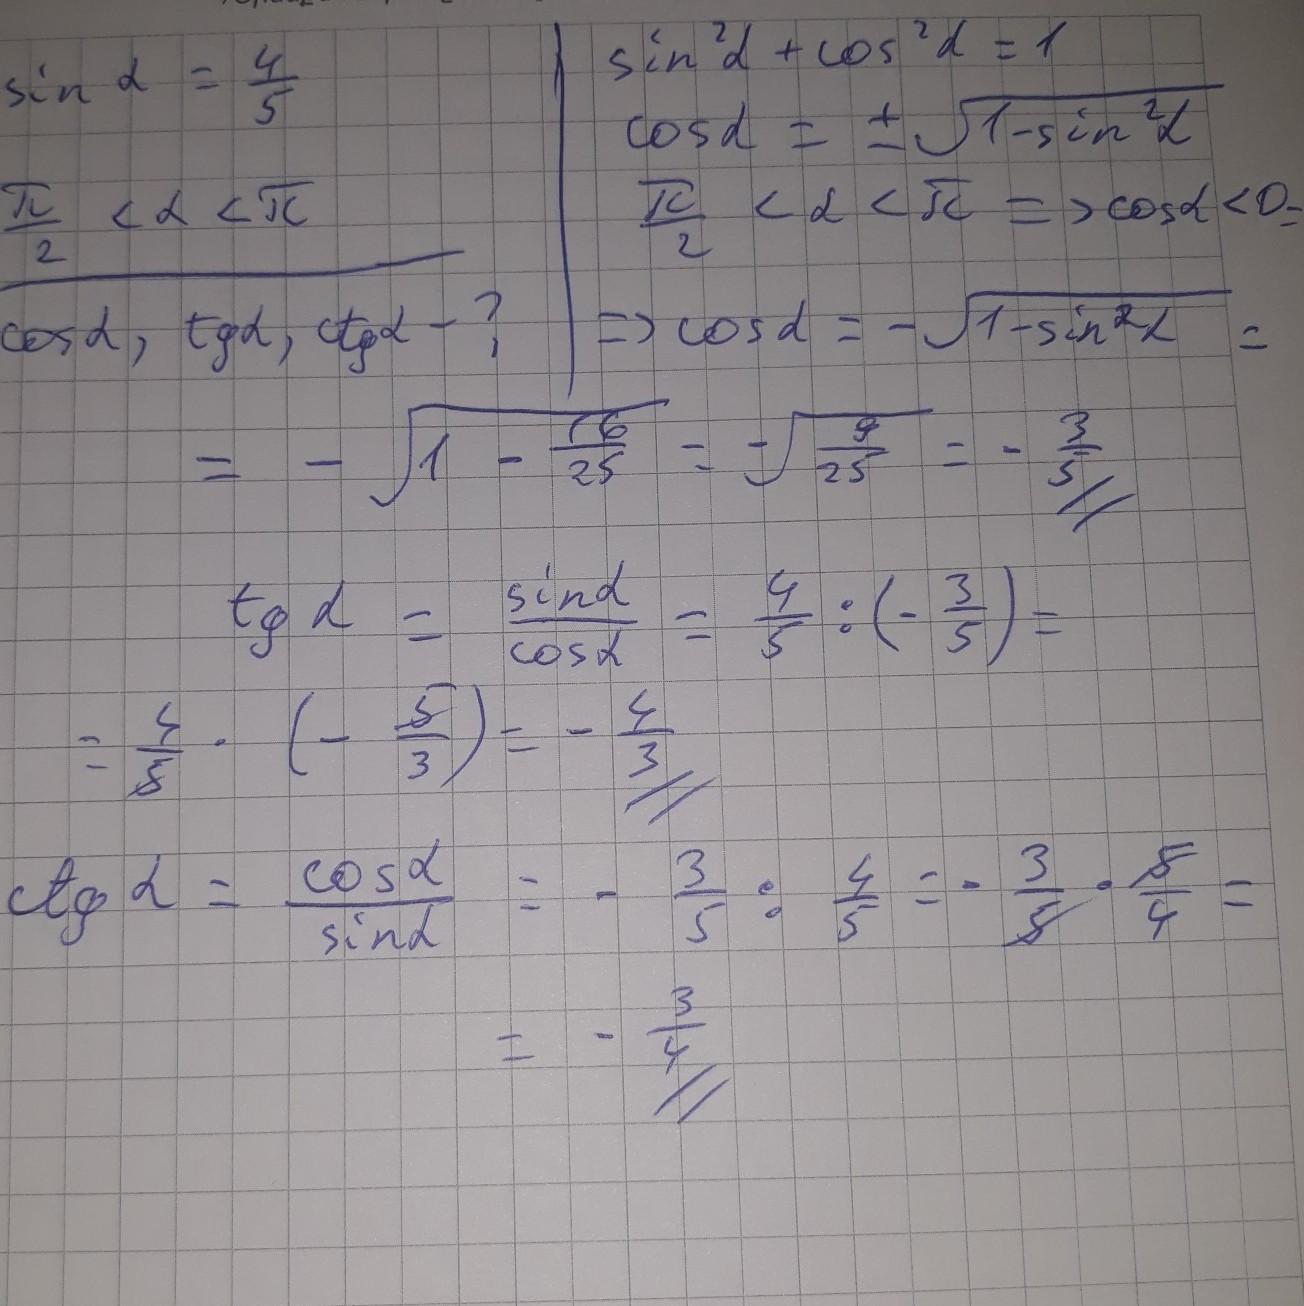 sin α = 4/5
π/2 < α < π
cos α, tg α, ctg α - ?
sin²α + cos²α = 1
cos α = ± √(1 - sin²α)
π/2 < α < π => cos α < 0 =
=> cos α = - √(1 - sin²α) =
= - √(1 - 16/25) = - √(9/25) = - 3/5
tg α = sin α / cos α = 4/5 : (- 3/5) =
= 4/5 · (- 5/3) = - 4/3
ctg α = cos α / sin α = - 3/5 : 4/5 = - 3/5 · 5/4 =
= - 3/4